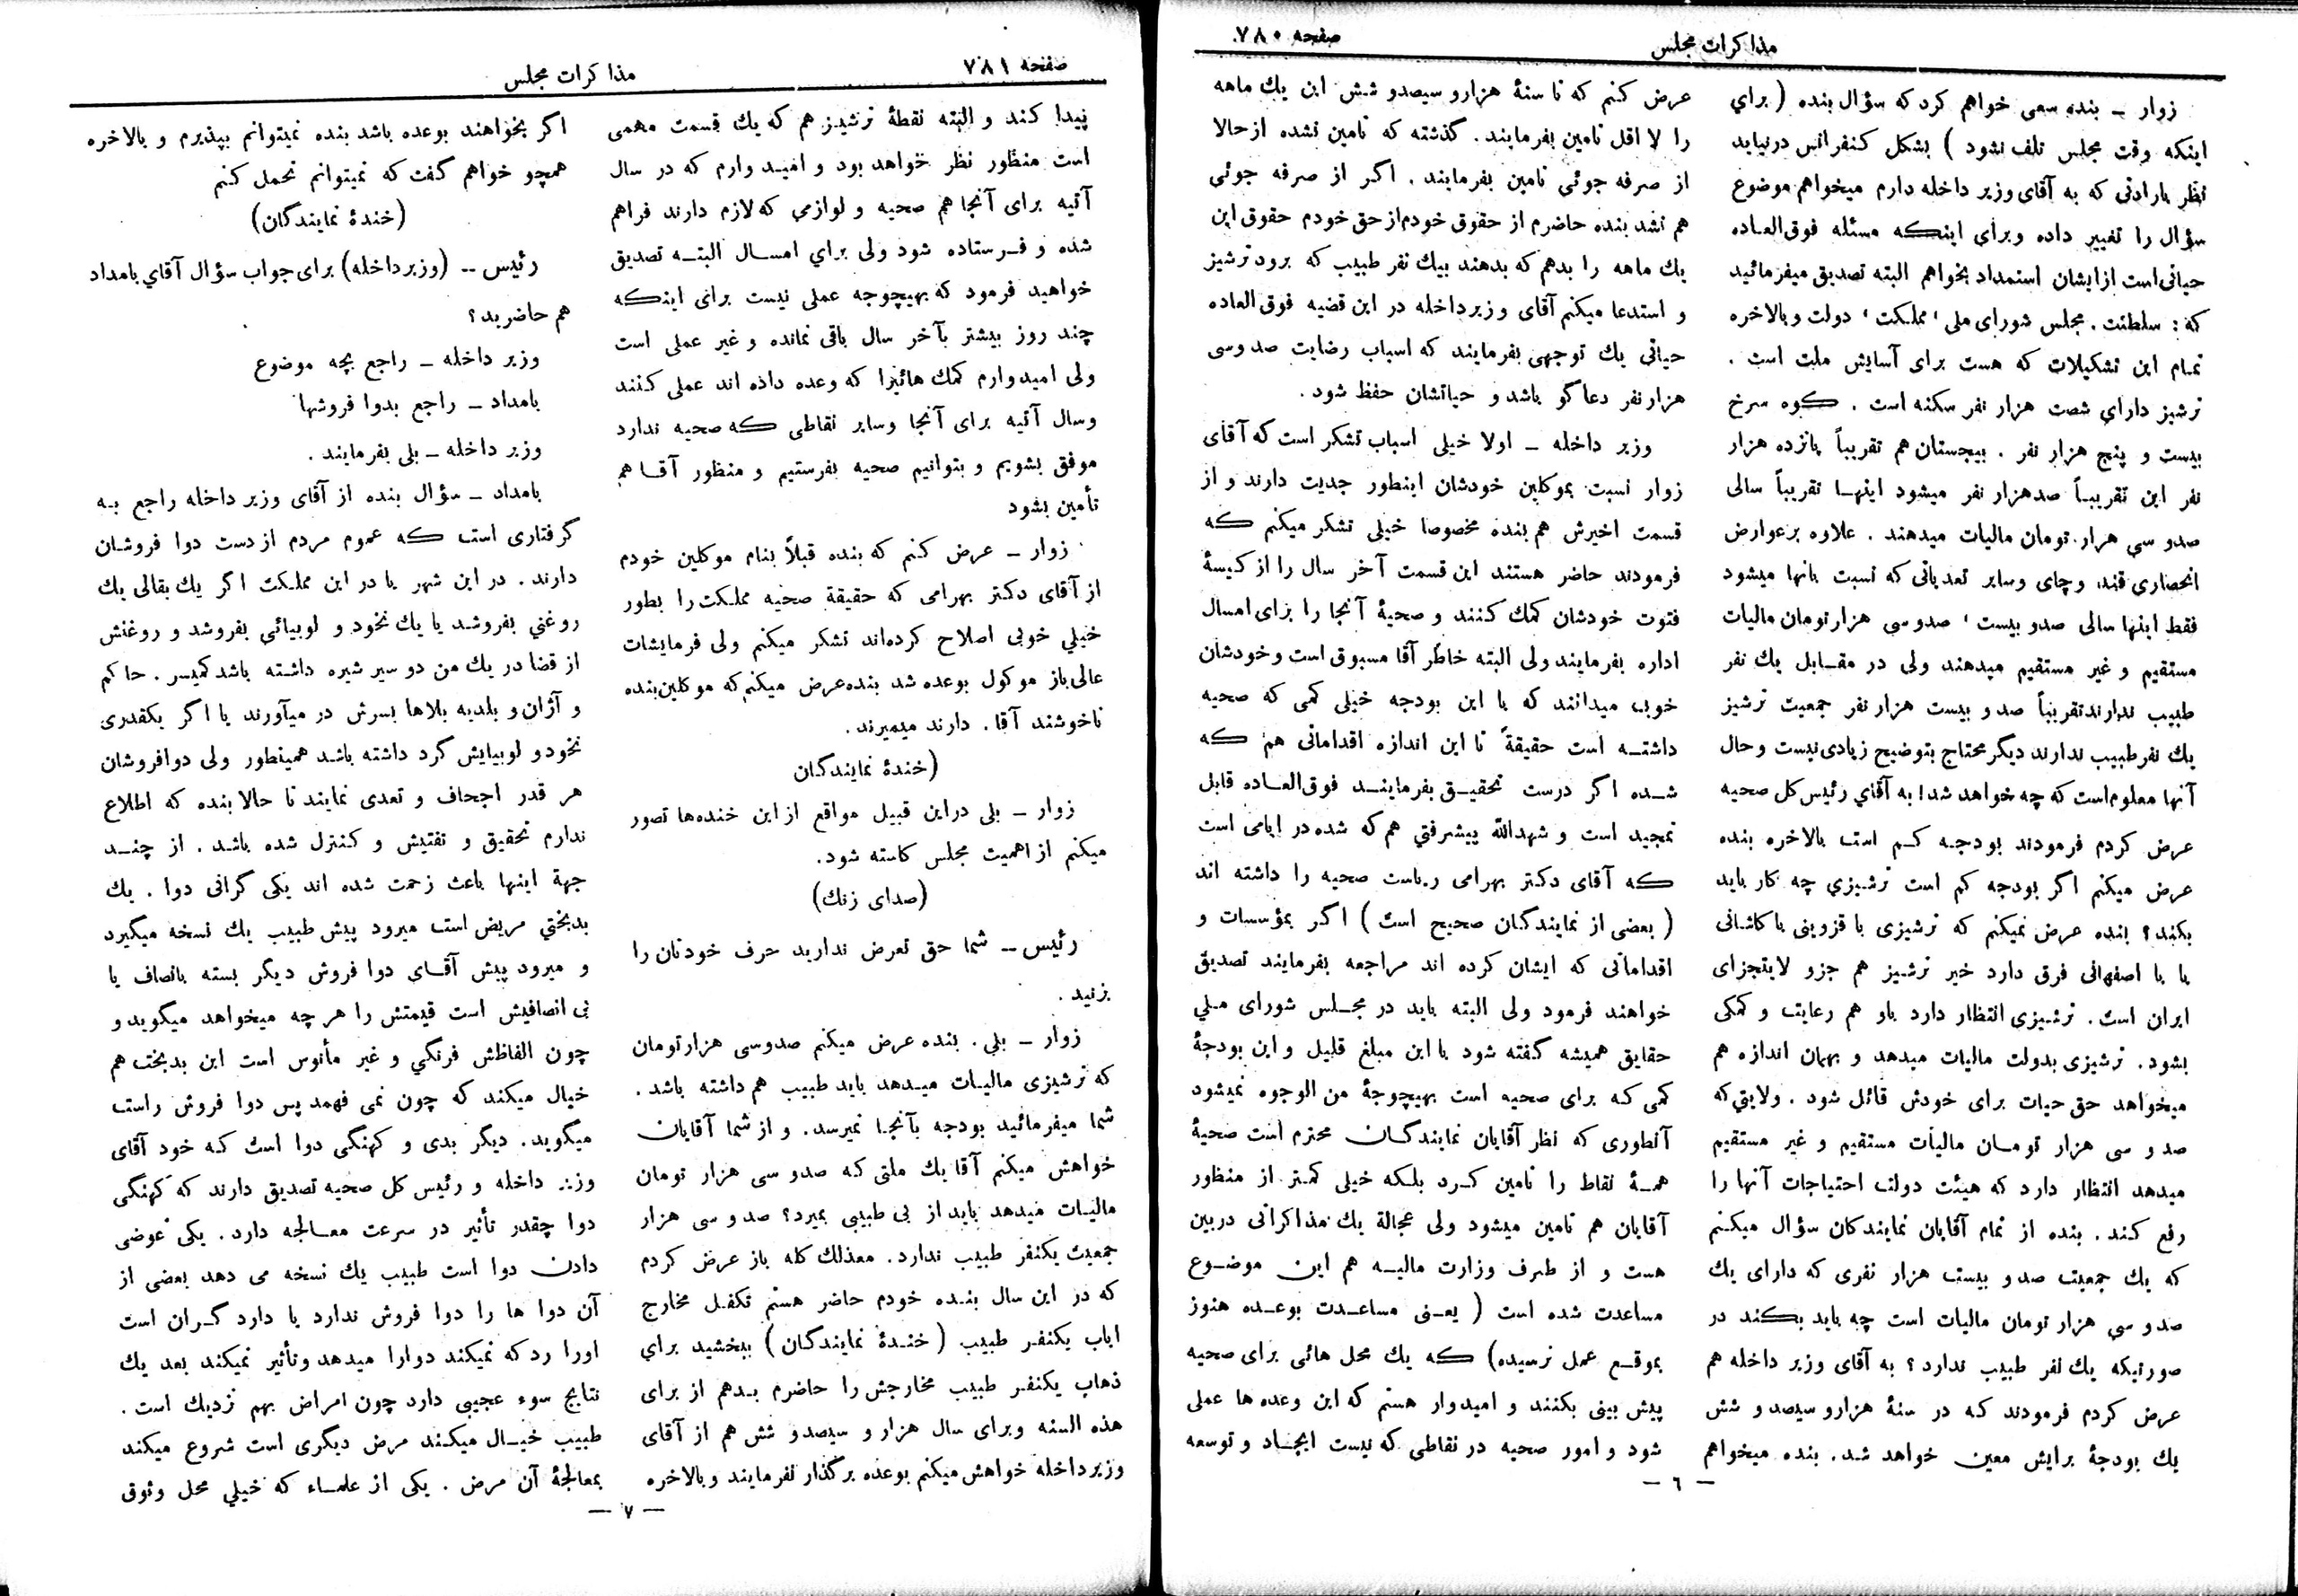 صفحه ۷۸۰
مذاکرات مجلس
زوار ـ بنده سعی خواهم کرد که سؤال بنده ( برای
اینکه وقت مجلس تلف نشود ) بشکل کنفرانس درنیاید
نظر بارادتی که به آقای وزیر داخله دارم میخواهم موضوع
سؤال را تغییر داده وبرای اینکه مسئله فوق‌العاده
حیاتی‌است ازایشان استمداد بخواهم البته تصدیق میفرمائید
که : سلطنت . مجلس شورای ملی ، مملکت ، دولت وبالاخره
تمام این تشکیلات که هست برای آسایش ملت است .
ترشیز دارای شصت هزار نفر سکنه است . کوه سرخ
بیست و پنج هزار نفر . بیجستان هم تقریباً پانزده هزار
نفر این تقریباً صدهزار نفر میشود اینها تقریباً سالی
صدو سی هزار تومان مالیات میدهند . علاوه برعوارض
انحصاری قند، وچای وسایر تعدیاتی که نسبت بانها میشود
فقط اینها سالی صدو بیست ، صدو سی هزارتومان مالیات
مستقیم و غیر مستقیم میدهند ولی در مقابل یك نفر
طبیب ندارند تقریباً صدو بیست هزار نفر جمعیت ترشیز
یك نفر طبیب ندارند دیگر محتاج بتوضیح زیادی نیست وحال
آنها معلوم‌است که چه خواهد شد! به آقای رئیس کل صحیه
عرض کردم فرمودند بودجه کم است بالاخره بنده
عرض میکنم اگر بودجه کم است ترشیزی چه کار باید
بکند؟ بنده عرض نمیکنم که ترشیزی با قزوینی یا کاشانی
یا با اصفهانی فرق دارد خیر ترشیز هم جزو لایتجزای
ایران است . ترشیزی انتظار دارد باو هم رعایت و کمکی
بشود . ترشیزی بدولت مالیات میدهد و بهمان اندازه هم
میخواهد حق حیات برای خودش قائل شود . ولایتی که
صدو سی هزار تومان مالیات مستقیم و غیر مستقیم
میدهد انتظار دارد که هیئت دولت احتیاجات آنها را
رفع کند . بنده از تمام آقایان نمایندکان سؤال میکنم
که یك جمعیت صدو بیست هزار نفری که دارای یك
صدو سی هزار تومان مالیات است چه باید بکند در
صورتیکه یك نفر طبیب ندارد ؟ به آقای وزیر داخله هم
عرض کردم فرمودند که در سنهٔ هزارو سیصدو شش
یك بودجهٔ برایش معین خواهد شد . بنده میخواهم
عرض کنم که تا سنهٔ هزارو سیصدو شش این یك ماهه
را لا اقل تامین بفرمایند . گذشته که تامین نشده ازحالا
از صرفه جوئی تامین بفرمایند . اگر از صرفه جوئی
هم نشد بنده حاضرم از حقوق خودم ازحق خودم حقوق این
یك ماهه را بدهم که بدهند بیك نفر طبیب که برود ترشیز
و استدعا میکنم آقای وزیرداخله در این قضیه فوق‌العاده
حیاتی یك توجهی بفرمایند که اسباب رضایت صدوسی
هزارنفر دعاگو باشد و حیاتشان حفظ شود .
وزیر داخله ـ اولا خیلی اسباب تشکر است که آقای
زوار نسبت بموکلین خودشان اینطور جدیت دارند و از
قسمت اخیرش هم بنده مخصوصا خیلی تشکر میکنم که
فرمودند حاضر هستند این قسمت آخر سال را از کیسهٔ
فتوت خودشان کمك کنند و صحیهٔ آنجا را برای امسال
اداره بفرمایند ولی البته خاطر آقا مسبوق است و خودشان
خوب میدانند که با این بودجه خیلی کمی که صحیه
داشته است حقیقةً تا این اندازه اقداماتی هم که
شده اگر درست تحقیق بفرمایند فوق‌العاده قابل
تمجید است و شهدالله پیشرفتی هم که شده در ایامی است
که آقای دکتر بهرامی ریاست صحیه را داشته اند
( بعضی از نمایندگان صحیح است ) اگر بمؤسسات و
اقداماتی که ایشان کرده اند مراجعه بفرمایند تصدیق
خواهند فرمود ولی البته باید در مجلس شورای ملی
حقایق همیشه گفته شود با این مبلغ قلیل و این بودجهٔ
کمی که برای صحیه است بهیچوجهٔ من الوجوه نمیشود
آنطوری که نظر آقایان نمایندگان محترم است صحیهٔ
همهٔ نقاط را تامین کرد بلکه خیلی کمتر از منظور
آقایان هم تامین میشود ولی عجالة یك مذاکراتی دربین
هست و از طرف وزارت مالیه هم این موضوع
مساعدت شده است ( یعنی مساعدت بوعده هنوز
بموقع عمل نرسیده) که یك محل هائی برای صحیه
پیش بینی بکنند و امیدوار هستم که این وعده ها عملی
شود و امور صحیه در نقاطی که نیست ایجاد و توسعه
— ٦ —
صفحه ۷۸۱
مذاکرات مجلس
پیدا کند و البته نقطهٔ ترشیز هم که یك قسمت مهمی
است منظور نظر خواهد بود و امیدوارم که در سال
آتیه برای آنجا هم صحیه و لوازمی که لازم دارند فراهم
شده و فرستاده شود ولی برای امسال البته تصدیق
خواهید فرمود که بهیچوجه عملی نیست برای اینکه
چند روز بیشتر بآخر سال باقی نمانده و غیر عملی است
ولی امیدوارم کمك هائیرا که وعده داده اند عملی کنند
وسال آتیه برای آنجا وسایر نقاطی که صحیه ندارد
موفق بشویم و بتوانیم صحیه بفرستیم و منظور آقا هم
تأمین بشود
زوار ـ عرض کنم که بنده قبلاً بنام موکلین خودم
از آقای دکتر بهرامی که حقیقة صحیه مملکت را بطور
خیلی خوبی اصلاح کرده‌اند تشکر میکنم ولی فرمایشات
عالی باز موکول بوعده شد بنده عرض میکنم که موکلین بنده
ناخوشند آقا . دارند میمیرند .
(خندهٔ نمایندگان
زوار ـ بلی دراین قبیل مواقع از این خنده‌ها تصور
میکنم از اهمیت مجلس کاسته شود .
(صدای زنك)
رئیس ـ شما حق تعرض ندارید حرف خودتان را
بزنید .
زوار ـ بلی . بنده عرض میکنم صدوسی هزارتومان
که ترشیزی مالیات میدهد باید طبیب هم داشته باشد .
شما میفرمائید بودجه بآنجا نمیرسد . و از شما آقایان
خواهش میکنم آقا یك ملتی که صدو سی هزار تومان
مالیات میدهد باید از بی طبیبی بمیرد؟ صدو سی هزار
جمعیت یکنفر طبیب ندارد . معذلك کله باز عرض کردم
که در این سال بنده خودم حاضر هستم تکفل مخارج
ایاب یکنفر طبیب ( خندهٔ نمایندگان ) ببخشید برای
ذهاب یکنفر طبیب مخارجش را حاضرم بدهم از برای
هذه السنه وبرای سال هزار و سیصدو شش هم از آقای
وزیرداخله خواهش میکنم بوعده برگذار نفرمایند وبالاخره
اگر بخواهند بوعده باشد بنده نمیتوانم بپذیرم و بالاخره
همچو خواهم گفت که نمیتوانم تحمل کنم
(خندهٔ نمایندگان)
رئیس ـ (وزیرداخله) برای جواب سؤال آقای بامداد
هم حاضرید ؟
وزیر داخله ـ راجع بچه موضوع
بامداد ـ راجع بدوا فروشها
وزیر داخله ـ بلی بفرمایند .
بامداد ـ سؤال بنده از آقای وزیر داخله راجع به
گرفتاری است که عموم مردم از دست دوا فروشان
دارند . در این شهر یا در این مملکت اگر یك بقالی یك
روغنی بفروشد یا یك نخود و لوبیائی بفروشد و روغنش
از قضا در یك من دو سیر شیره داشته باشد کمیسر . حاکم
و آژان و بلدیه بلاها بسرش در میآورند یا اگر یکقدری
نخودو لوبیایش کرد داشته باشد همینطور ولی دوافروشان
هر قدر اجحاف و تعدی نمایند تا حالا بنده که اطلاع
ندارم تحقیق و تفتیش و کنترل شده باشد . از چند
جهة اینها باعث زحمت شده اند یکی گرانی دوا . یك
بدبختی مریض است میرود پیش طبیب یك نسخه میگیرد
و میرود پیش آقای دوا فروش دیگر بسته بانصاف یا
بی انصافیش است قیمتش را هر چه میخواهد میگوید و
چون الفاظش فرنگی و غیر مأنوس است این بدبخت هم
خیال میکند که چون نمی فهمد پس دوا فروش راست
میگوید . دیگر بدی و کهنگی دوا است که خود آقای
وزیر داخله و رئیس کل صحیه تصدیق دارند که کهنگی
دوا چقدر تأثیر در سرعت معالجه دارد . یکی عوضی
دادن دوا است طبیب یك نسخه می دهد بعضی از
آن دوا ها را دوا فروش ندارد یا دارد گران است
اورا رد که نمیکند دوارا میدهد وتأثیر نمیکند بعد یك
نتایج سوء عجیبی دارد چون امراض بهم نزدیك است .
طبیب خیال میکند مرض دیگری است شروع میکند
بمعالجهٔ آن مرض . یکی از علماء که خیلی محل وثوق
— ۷ —